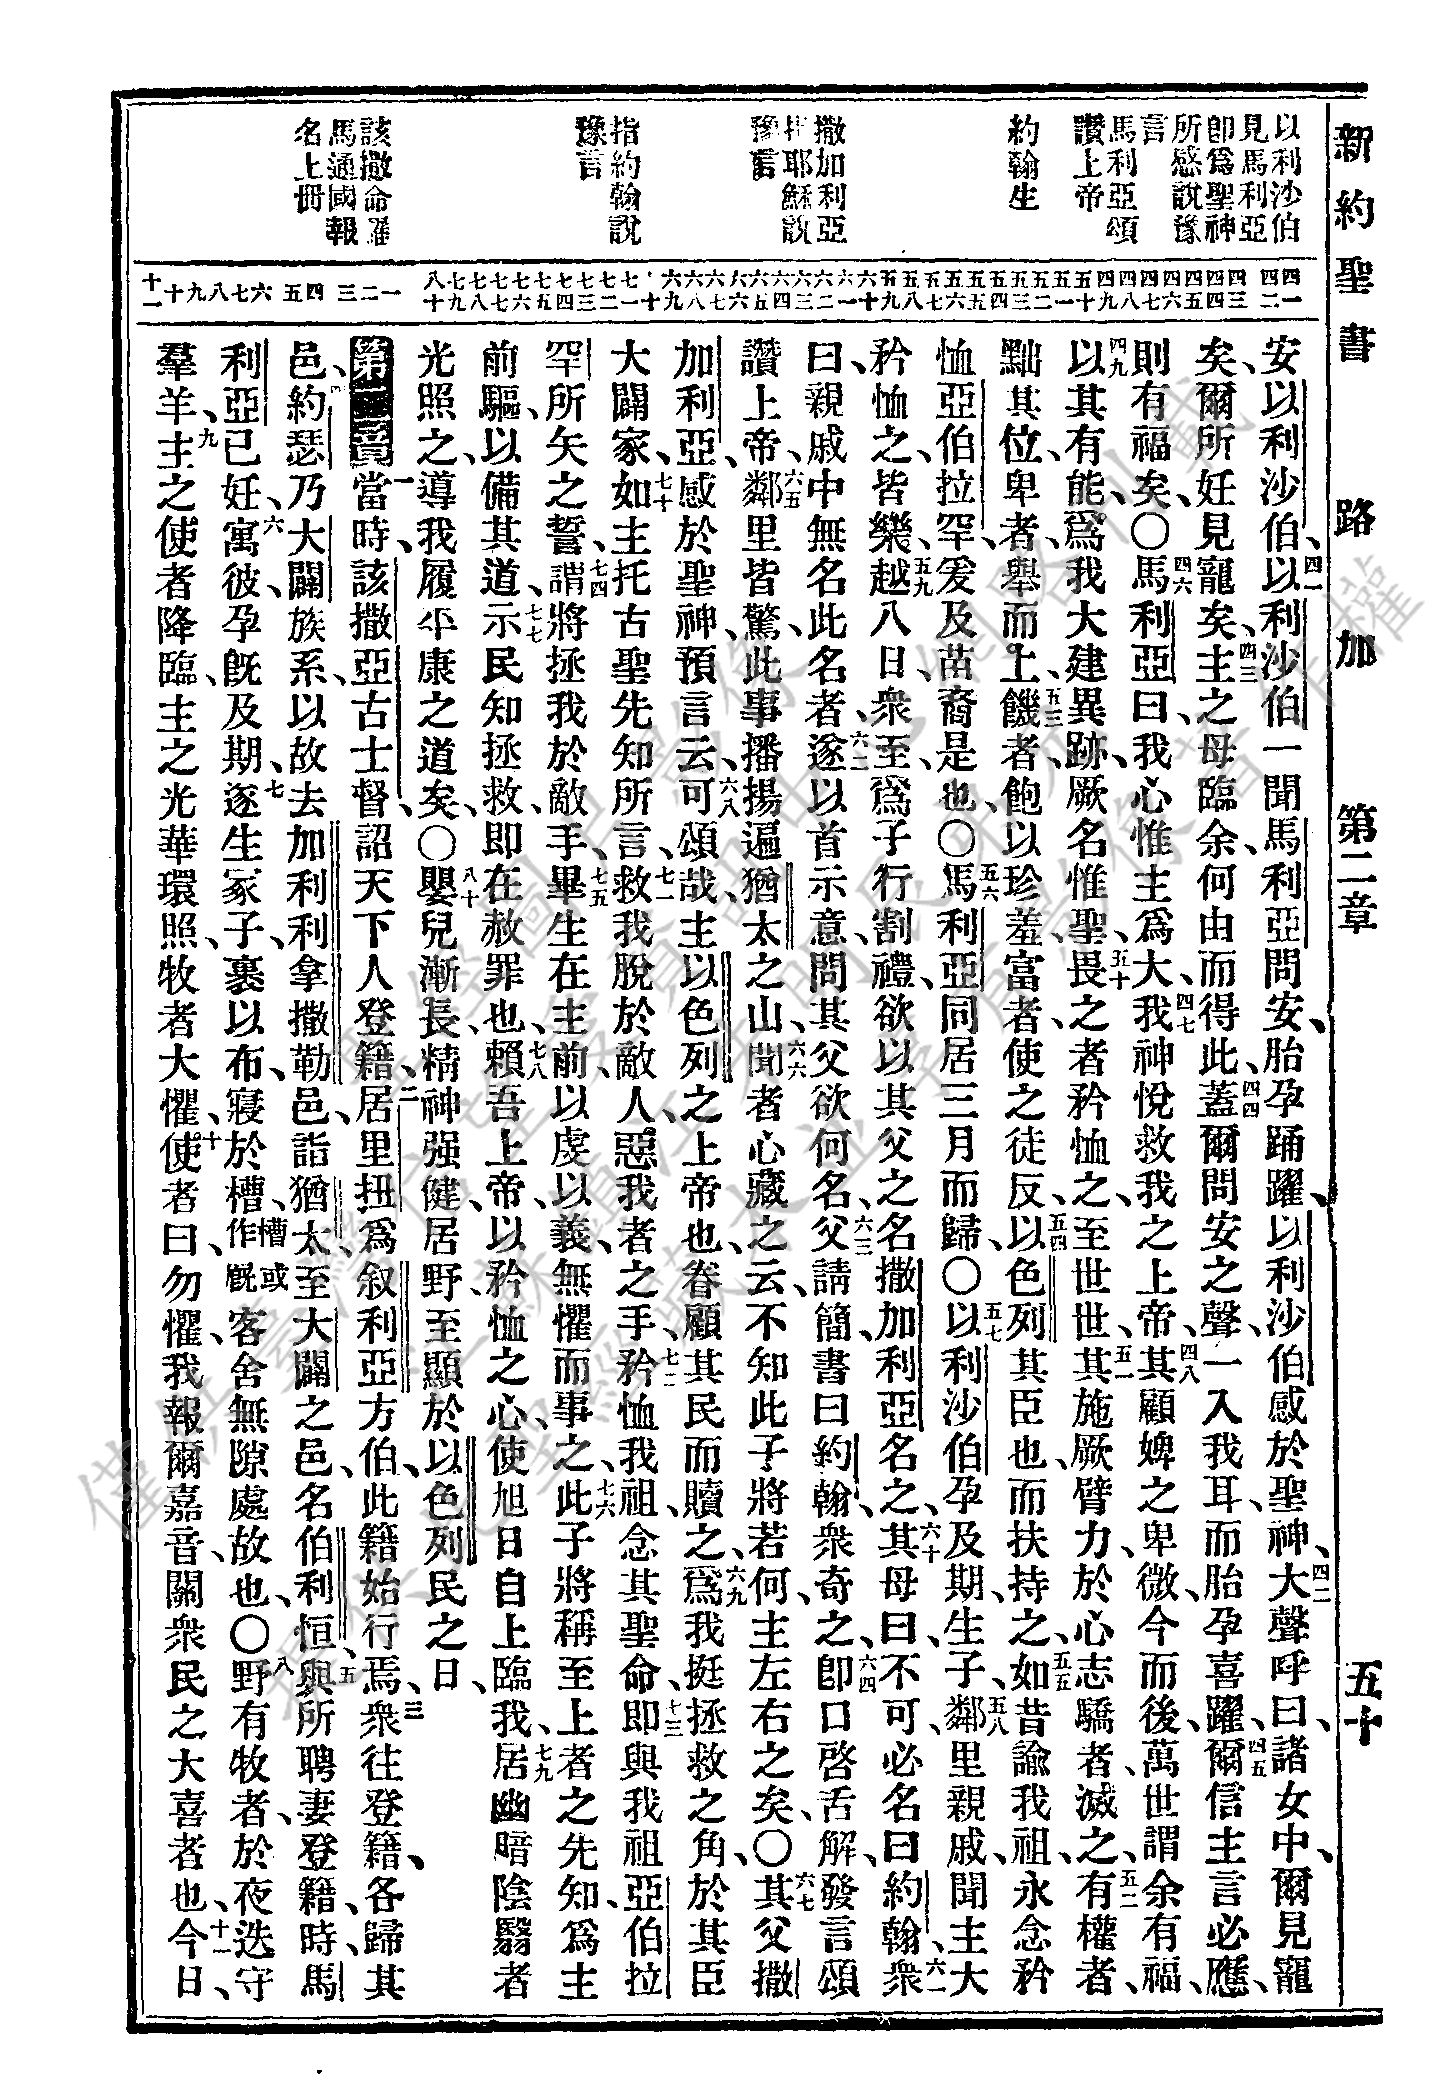 新約聖書 路加 第二章 五十
以利沙伯
見馬利亞
卽爲聖神
所感說豫
言
馬利亞頌
讚上帝
約翰生
撒加利亞
指耶穌說
豫言
指約翰說
豫言
該撒命羅
馬通國報
名上冊
安、以利沙伯、四一以利沙伯一聞馬利亞問安、胎孕踊躍、以利沙伯感於聖神、四二大聲呼曰、諸女中、爾見寵
矣、爾所妊見寵矣、四三主之母臨余、何由而得此、四四蓋爾問安之聲、一入我耳、而胎孕喜躍、四五爾信主言必應、
則有福矣、〇四六馬利亞曰、我心惟主爲大、四七我神悅救我之上帝、四八其顧婢之卑微、今而後、萬世謂余有福、
四九以其有能、爲我大建異跡、厥名惟聖、五十畏之者矜恤之、至世世、五一其施厥臂力、於心志驕者、滅之、五二有權者、
黜其位、卑者、舉而上、五三饑者、飽以珍羞、富者、使之徒反、五四以色列其臣也、而扶持之、五五如昔諭我祖、永念矜
恤亞伯拉罕、爰及苗裔是也、〇五六馬利亞同居三月而歸、〇五七以利沙伯孕及期、生子、五八鄰里親戚、聞主大
矜恤之、皆樂、五九越八日、衆至、爲子行割禮、欲以其父之名撒加利亞名之、六十其母曰、不可、必名曰約翰、六一衆
曰、親戚中無名此名者、六二遂以首示意、問其父欲何名、六三父請簡、書曰約翰、衆奇之、六四卽口啓舌解、發言頌
讚上帝、六五鄰里皆驚、此事播揚遍猶太之山、六六聞者心藏之、云、不知此子將若何、主左右之矣、〇六七其父撒
加利亞、感於聖神、預言云、六八可頌哉、主以色列之上帝也、眷顧其民而贖之、六九爲我挺拯救之角、於其臣
大闢家、七十如主托古聖先知所言、七一救我脫於敵人、惡我者之手、七二矜恤我祖、念其聖命、七三即與我祖亞伯拉
罕所矢之誓、七四謂將拯我於敵手、七五畢生在主前、以虔以義、無懼而事之、七六此子將稱至上者之先知、爲主
前驅、以備其道、七七示民知拯救、即在赦罪也、七八賴吾上帝、以矜恤之心、使旭日自上臨我、七九居幽暗陰翳者
光照之、導我履平康之道矣、〇八十嬰兒漸長、精神强健、居野、至顯於以色列民之日、
第二章 一當時、該撒亞古士督、詔天下人登籍、二居里扭爲叙利亞方伯、此籍始行焉、三衆往登籍、各歸其
邑、四約瑟乃大闢族系、以故去加利利拿撒勒邑、詣猶太、至大闢之邑、名伯利恒、五與所聘妻登籍、時、馬
利亞已妊、六寓彼、孕旣及期、七遂生冢子、裹以布、寢於槽、槽或作廐客舍無隙處故也、〇八野有牧者、於夜迭守
羣羊、九主之使者降臨、主之光華環照、牧者大懼、十使者曰、勿懼、我報爾嘉音、關衆民之大喜者也、十一今日、